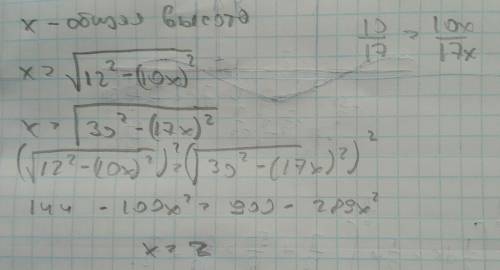 x - общая высота
10/17 = 10x/17x
x = √(12² - (10x)²)
x = √(30² - (17x)²)
(√(12² - (10x)²))² = (√(30² - (17x)²))²
144 - 100x² = 900 - 289x²
x = 2